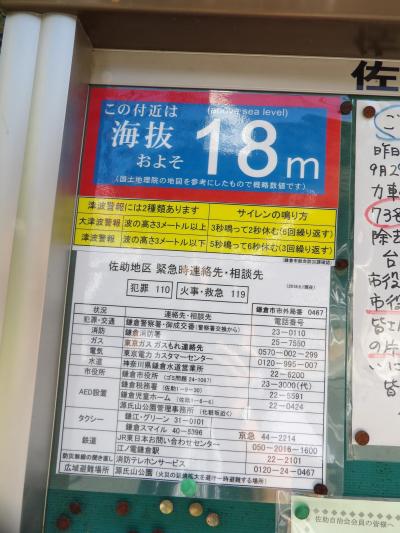 佐
この付近は
(above sea level)
海抜
およそ
18m
(国土地理院の地図を参考にしたもので概略数値です)
津波警報には2種類あります
サイレンの鳴り方
大津波警報 波の高さ3メートル以上 3秒鳴って2秒休む(3回繰り返す)
津波警報 波の高さ3メートル以下 5秒鳴って6秒休む(3回繰り返す)
佐助地区 緊急時連絡先・相談先
犯罪 110
火事・救急 119
鎌倉市市外局番 0467
状況 連絡先・相談先 電話番号
犯罪・交通 鎌倉警察署・御成交番(警察署交換から) 23-0110
消防 鎌倉消防署 25-7550
ガス 東京ガス ガスもれ連絡先 0570-002-299
電気 東京電力 カスタマーセンター 0120-995-007
水道 神奈川県鎌倉水道営業所 22-6200
市役所 鎌倉市役所 23-3000(代)
AED設置 鎌倉税務署 (佐助1-9-30) 22-5591
鎌倉児童ホーム 22-0424
源氏山公園管理事務所 (化粧坂近く)
タクシー 鎌江・グリーン 31-0101
鎌倉スマイル 40-5396 京急 44-2214
鉄道 JR東日本お問い合わせセンター 050-2016-1600
江ノ電鎌倉駅 22-2101
防災無線の聞き直し 消防テレホンサービス 0120-24-0467
広域避難場所 源氏山公園 (火災の延焼拡大を避け一時避難する場所)
昨日
9月2
力車
73名
除去
台
市役
市役
皆さ
の片
いに
皆
佐助自治会会員の皆様へ